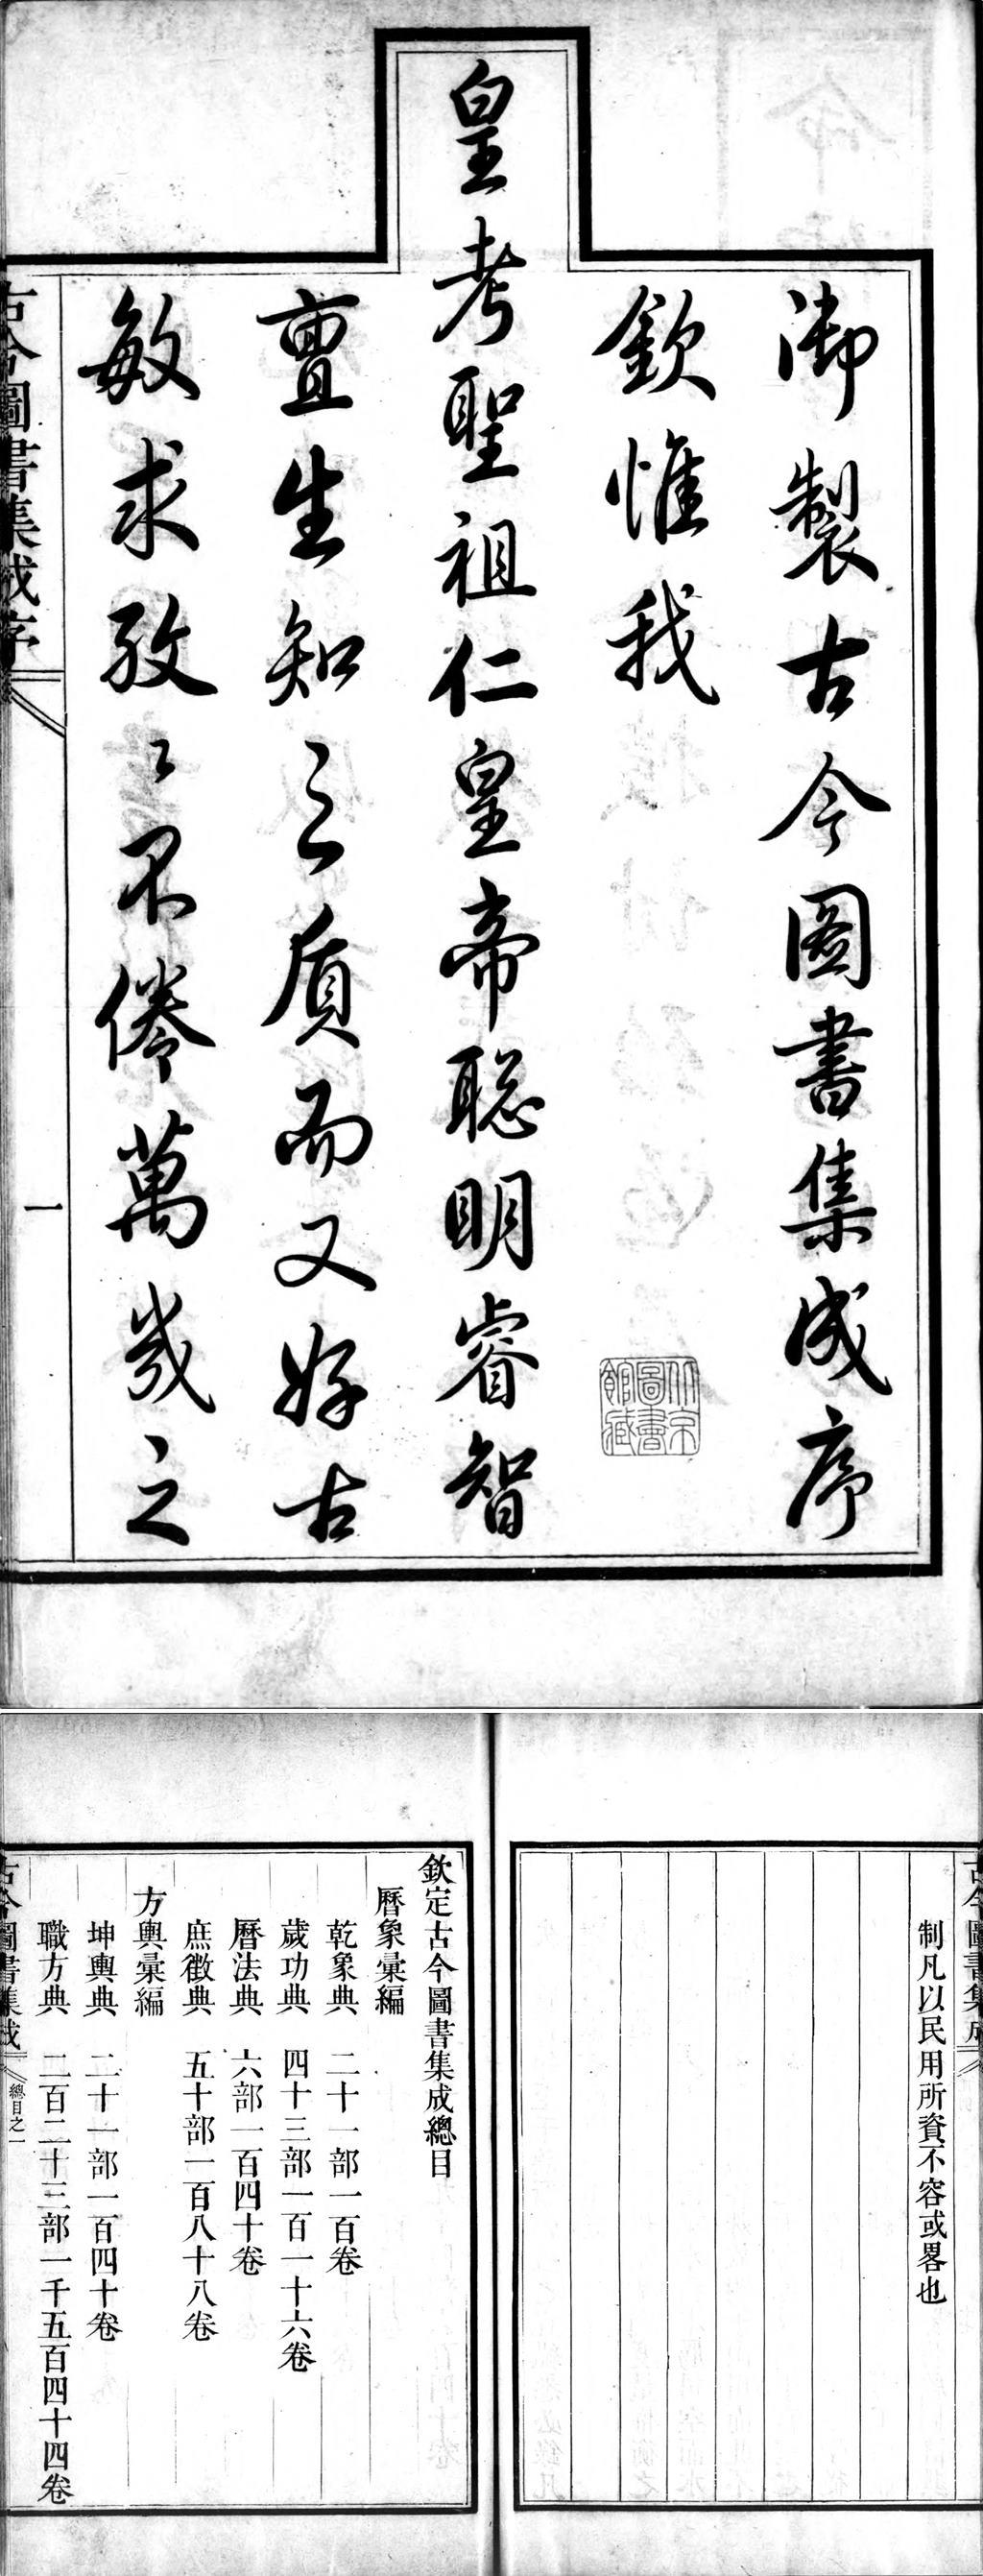 御製古今圖書集成序
欽惟我
皇考聖祖仁皇帝聰明睿智
亶生知之質而又好古
敏求孜〻不倦萬幾之
古今圖書集成序
一
北京圖書館藏
古今圖書集成
制凡以民用所資不容或畧也
欽定古今圖書集成總目
曆象彙編
乾象典 二十一部一百卷
歲功典 四十三部一百一十六卷
曆法典 六部一百四十卷
庶徵典 五十部一百八十八卷
方輿彙編
坤輿典 二十一部一百四十卷
職方典 二百二十三部一千五百四十四卷
古今圖書集成
總目之一